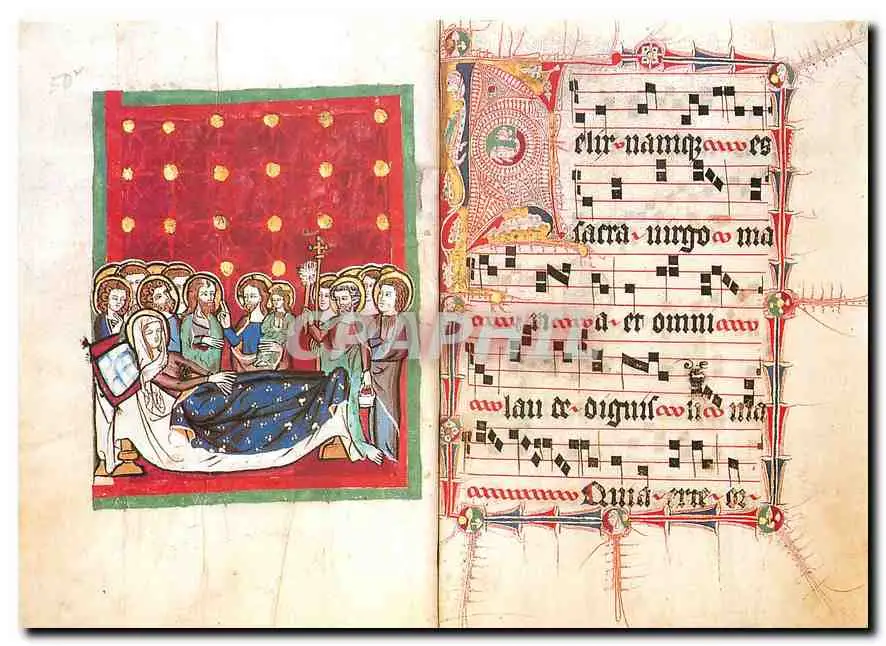 50v
elix namqz es
sacra virgo ma
ria et omni
laude digniss ma
Quia ex te or
CPAPHIL